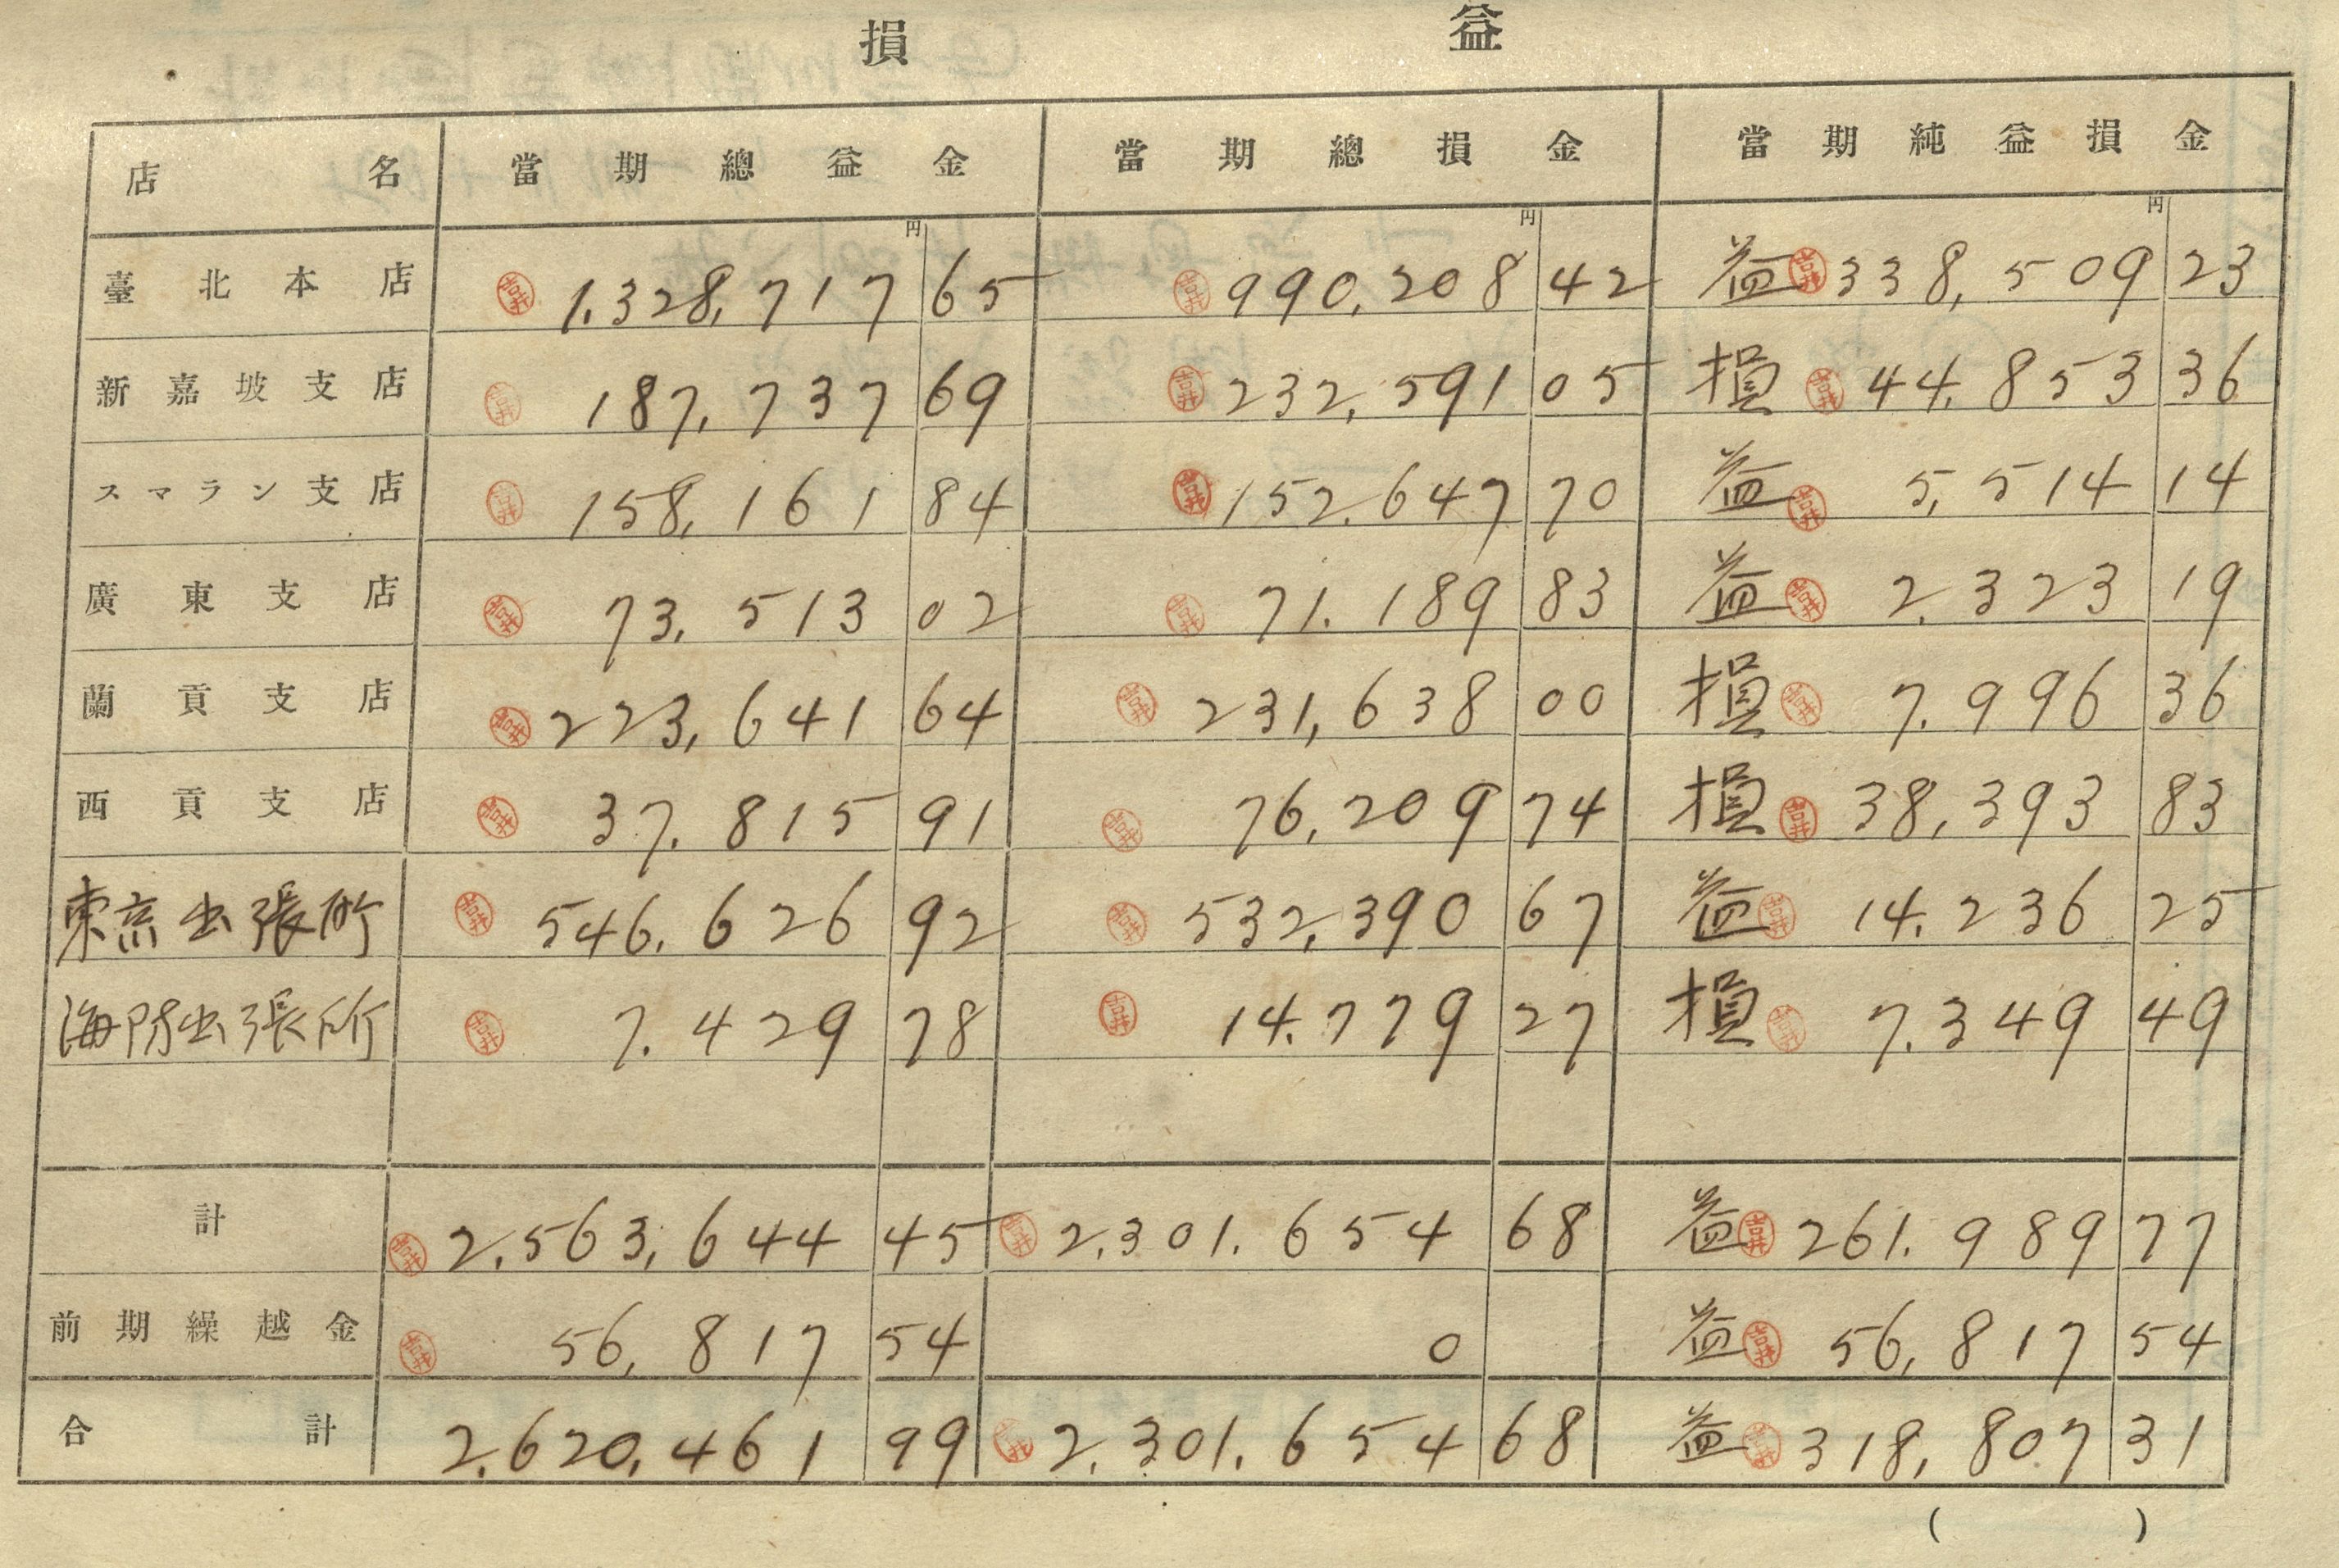 損 益
店名 當期總益金 當期總損金 當期純益損金
円 円 円
臺北本店 吉井 1,328,717 65 吉井 990,208 42 益 吉井 338,509 23
新嘉坡支店 吉井 187,737 69 吉井 232,591 05 損 吉井 44,853 36
スマラン支店 吉井 158,161 84 吉井 152,647 70 益 吉井 5,514 14
廣東支店 吉井 73,513 02 吉井 71,189 83 益 吉井 2,323 19
蘭貢支店 吉井 223,641 64 吉井 231,638 00 損 吉井 7,996 36
西貢支店 吉井 37,815 91 吉井 76,209 74 損 吉井 38,393 83
東京出張所 吉井 546,626 92 吉井 532,390 67 益 吉井 14,236 25
海防出張所 吉井 7,429 78 吉井 14,779 27 損 吉井 7,349 49
計 吉井 2,563,644 45 吉井 2,301,654 68 益 吉井 261,989 77
前期繰越金 吉井 56,817 54 0 益 吉井 56,817 54
合計 2,620,461 99 吉井 2,301,654 68 益 吉井 318,807 31
( )